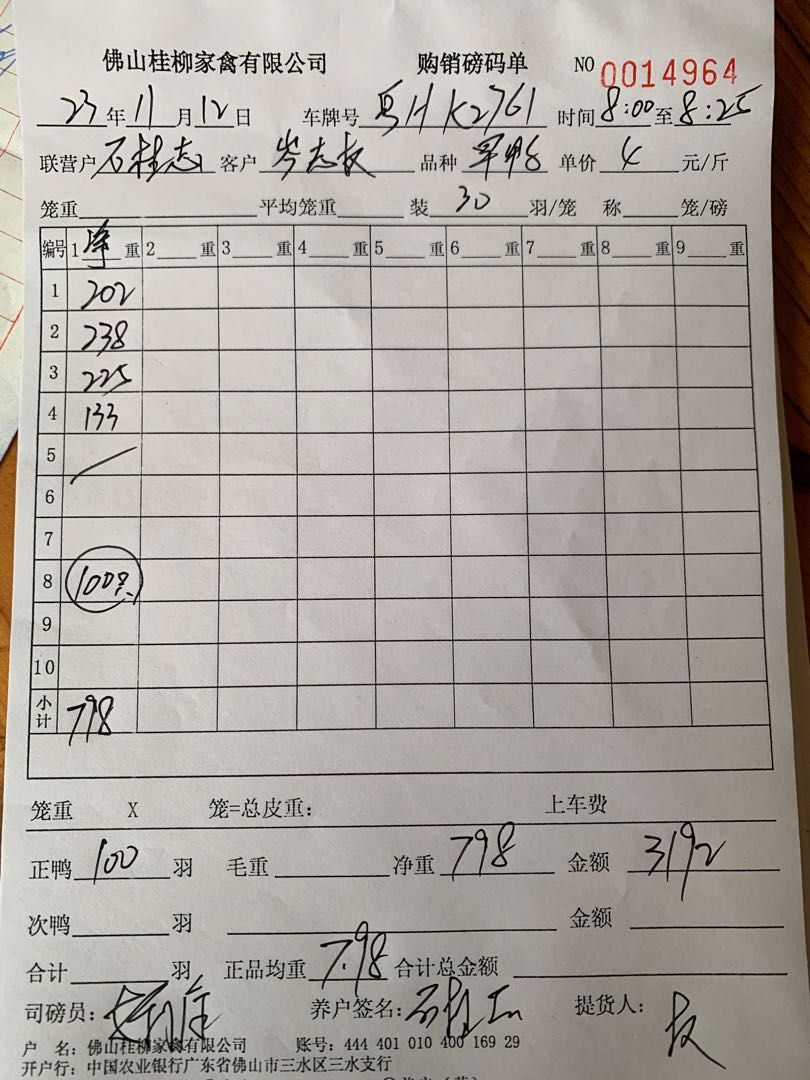 佛山桂柳家禽有限公司 购销磅码单 NO 0014964
23年11月12日 车牌号 粤H K2761 时间8:00至8:25
联营户 石桂志 客户 岑志权 品种 单价 4 元/斤
笼重 平均笼重 装 30 羽/笼 称 笼/磅
编号 1 净 重 2 重 3 重 4 重 5 重 6 重 7 重 8 重 9 重
1 202
2 238
3 225
4 133
5
6
7
8 100只
9
10
小计 798
笼重 X 笼=总皮重: 上车费
正鸭 100 羽 毛重 净重 798 金额 3192
次鸭 羽 金额
合计 羽 正品均重 7.98 合计总金额
司磅员: 养户签名: 石桂志 提货人: 权
户 名: 佛山桂柳家禽有限公司 账号: 444 401 010 400 169 29
开户行: 中国农业银行广东省佛山市三水区三水支行